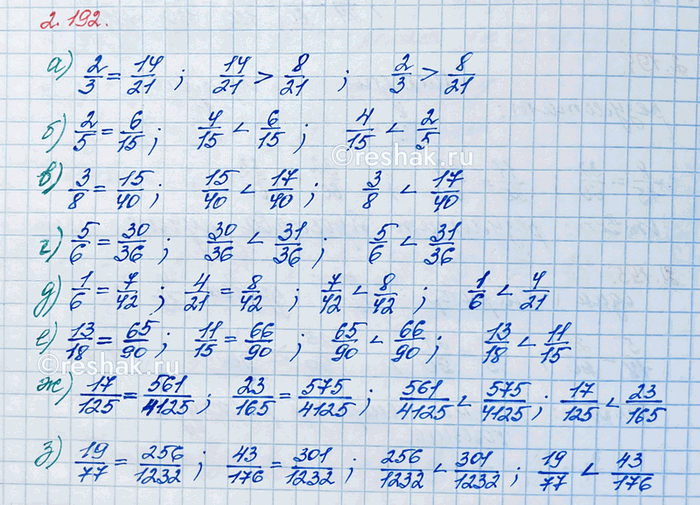 2.192.
а) 2/3 = 14/21 ; 14/21 > 8/21 ; 2/3 > 8/21
б) 2/5 = 6/15 ; 4/15 < 6/15 ; 4/15 < 2/5
©reshak.ru
в) 3/8 = 15/40 ; 15/40 < 17/40 ; 3/8 < 17/40
г) 5/6 = 30/36 ; 30/36 < 31/36 ; 5/6 < 31/36
д) 1/6 = 7/42 ; 4/21 = 8/42 ; 7/42 < 8/42 ; 1/6 < 4/21
е) 13/18 = 65/90 ; 11/15 = 66/90 ; 65/90 < 66/90 ; 13/18 < 11/15
©reshak.ru
ж) 17/125 = 561/4125 ; 23/165 = 575/4125 ; 561/4125 < 575/4125 ; 17/125 < 23/165
з) 19/77 = 256/1232 ; 43/176 = 301/1232 ; 256/1232 < 301/1232 ; 19/77 < 43/176